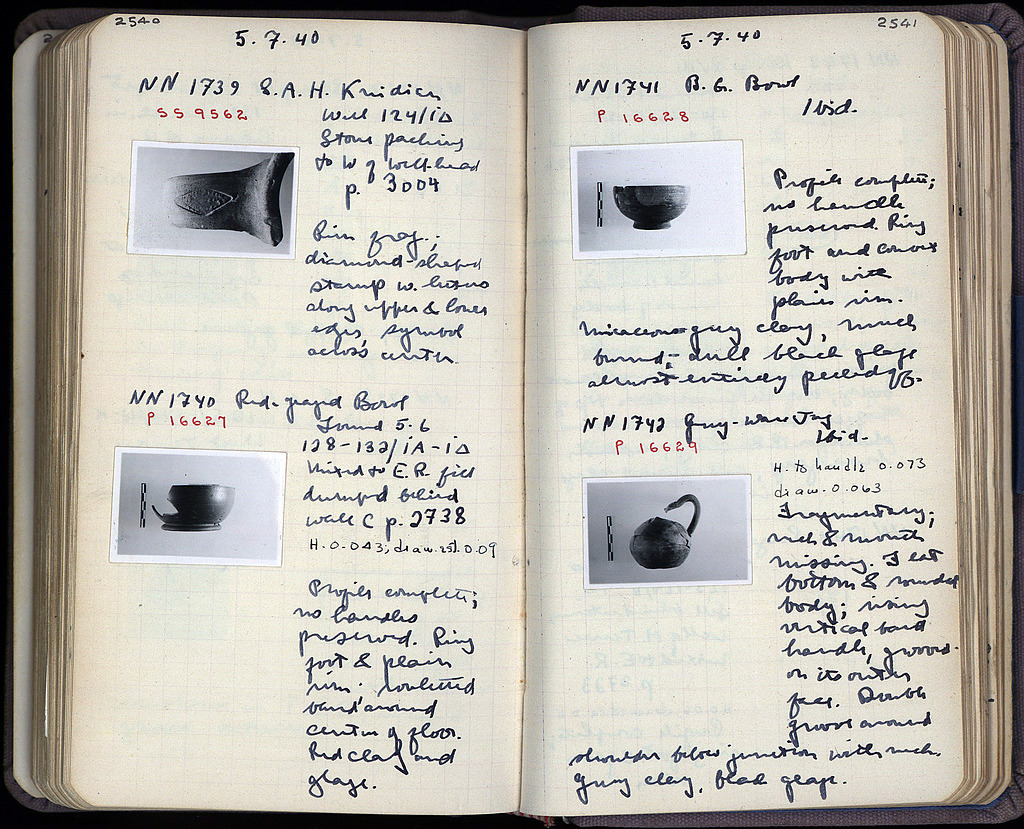 2540
5.7.40
NN 1739 S.A.H. Knidian
SS 9562
Well 124/ΙΔ
Stone packing
to W of well-head
p. 3004
Rim frag.;
diamond-shaped
stamp w. letters
along upper & lower
edges, symbol
across center.
NN 1740 Red-glazed Bowl
P 16627
Found 5.6
128-132/ΙΑ-ΙΔ
Mixed to E.R. fill
dumped behind
wall C p. 2738
H. 0.043; diam. est. 0.09
Profile complete;
no handles
preserved. Ring
foot & plain
rim. rouletted
band around
center of floor.
Red clay and
glaze.
2541
5.7.40
NN 1741 B.G. Bowl
Ibid.
P 16628
Profile complete;
no handle
preserved. Ring
foot and convex
body with
plain rim.
Micaceous grey clay, much
burned; dull black glaze
almost entirely peeled off.
NN 1742 Grey-ware Jug
Ibid.
P 16629
H. to handle 0.073
diam. 0.063
Fragmentary;
neck & mouth
missing. Flat
bottom & rounded
body; rising
vertical band
handle, grooved
on its outer
face. Double
groove around
shoulder below junction with neck.
Grey clay, black glaze.